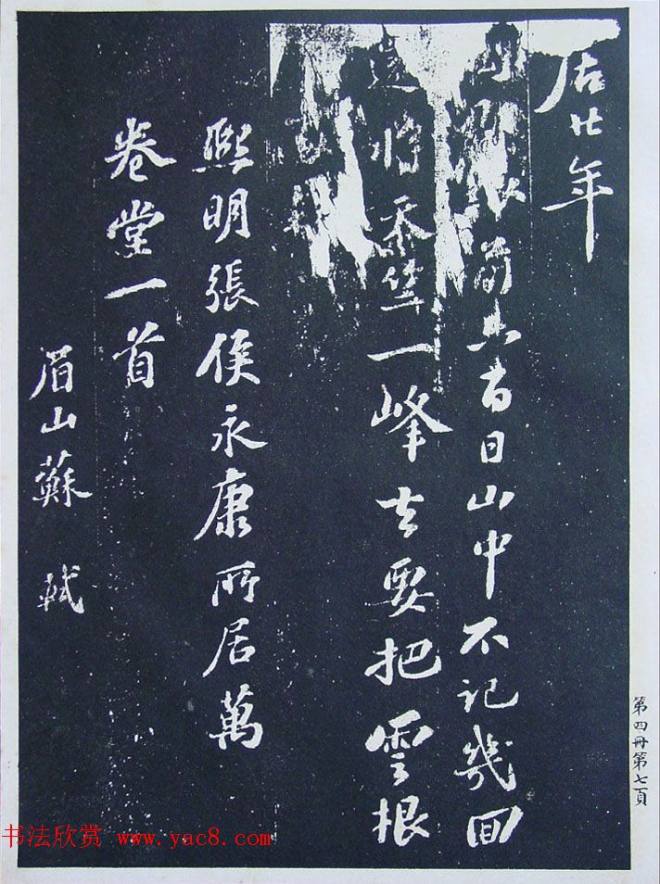 居廿年
前六百日山中不記幾回
還將天竺一峰去要把雲根
熙明張侯永康所居萬
卷堂一首
眉山蘇軾
第四冊第七頁
书法欣赏 www.yac8.com